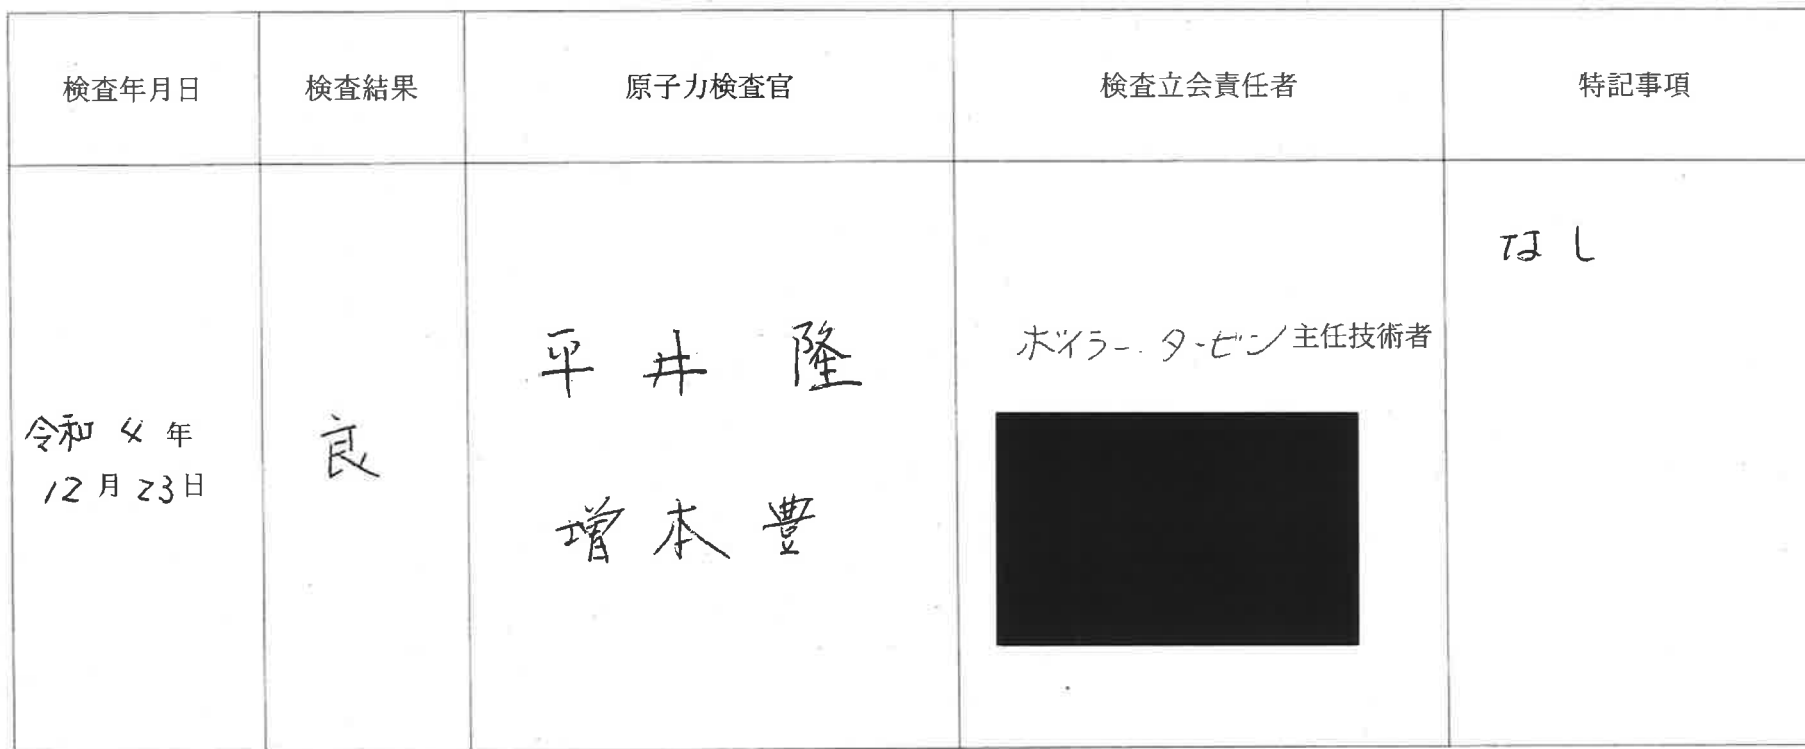 検査年月日
検査結果
原子力検査官
検査立会責任者
特記事項
令和4年
12月23日
良
平井 隆
増本 豊
ボイラー・タービン主任技術者
なし